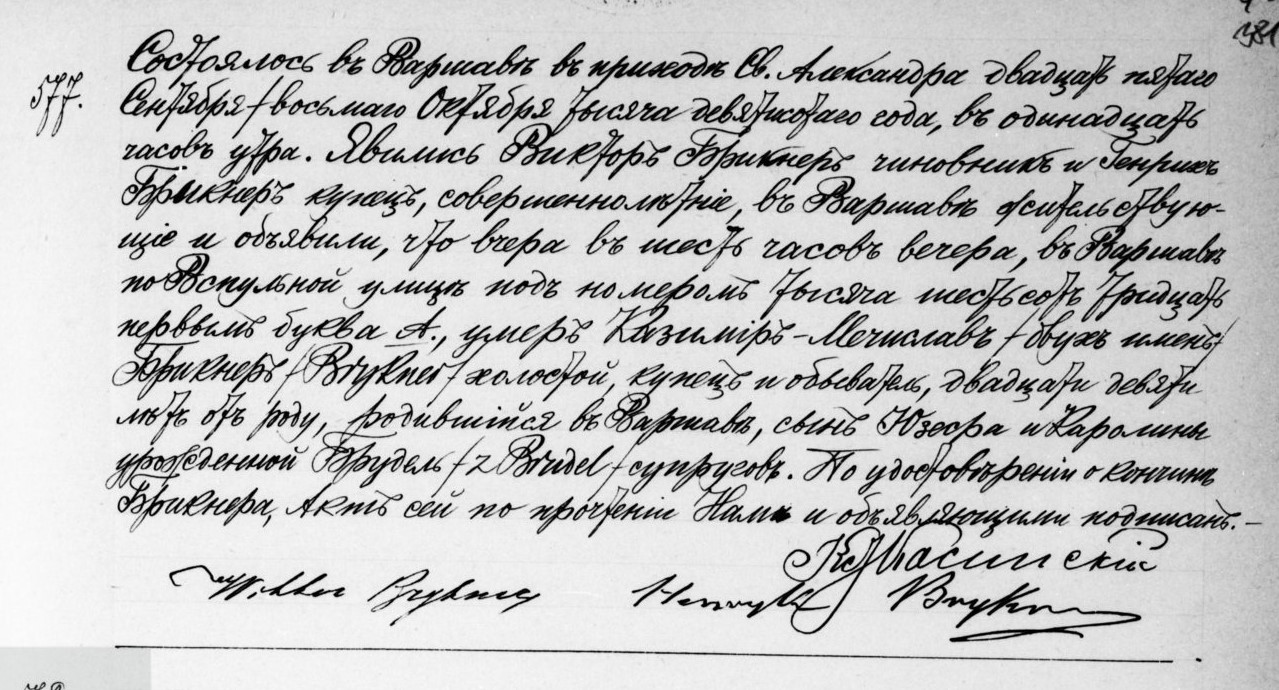 381
577.
Состоялось въ Варшавѣ въ приходѣ Св. Александра двадцать пятаго
Сентября /восьмаго Октября тысяча девятисотаго года, въ одинадцать
часовъ утра. Явились Викторъ Брикнеръ чиновникъ и Генрихъ
Брикнеръ купецъ, совершеннолѣтніе, въ Варшавѣ жительствую-
щіе и объявили, что вчера въ шесть часовъ вечера, въ Варшавѣ
по Вспульной улицѣ подъ номеромъ тысяча шестьсотъ тридцать
первымъ буква А., умеръ Казиміръ-Мечиславъ /двухъ именъ/
Брикнеръ /Brykner/ холостой, купецъ и обыватель, двадцати девяти
лѣтъ отъ роду, родившійся въ Варшавѣ, сынъ Юзефа и Каролины
урожденной Брудель /z Brudel/ супруговъ. По удостовѣреніи о кончинѣ
Брикнера, Актъ сей по прочтеніи Нами и объявляющими подписанъ.-
Wiktor Brykner Henryk Brykner